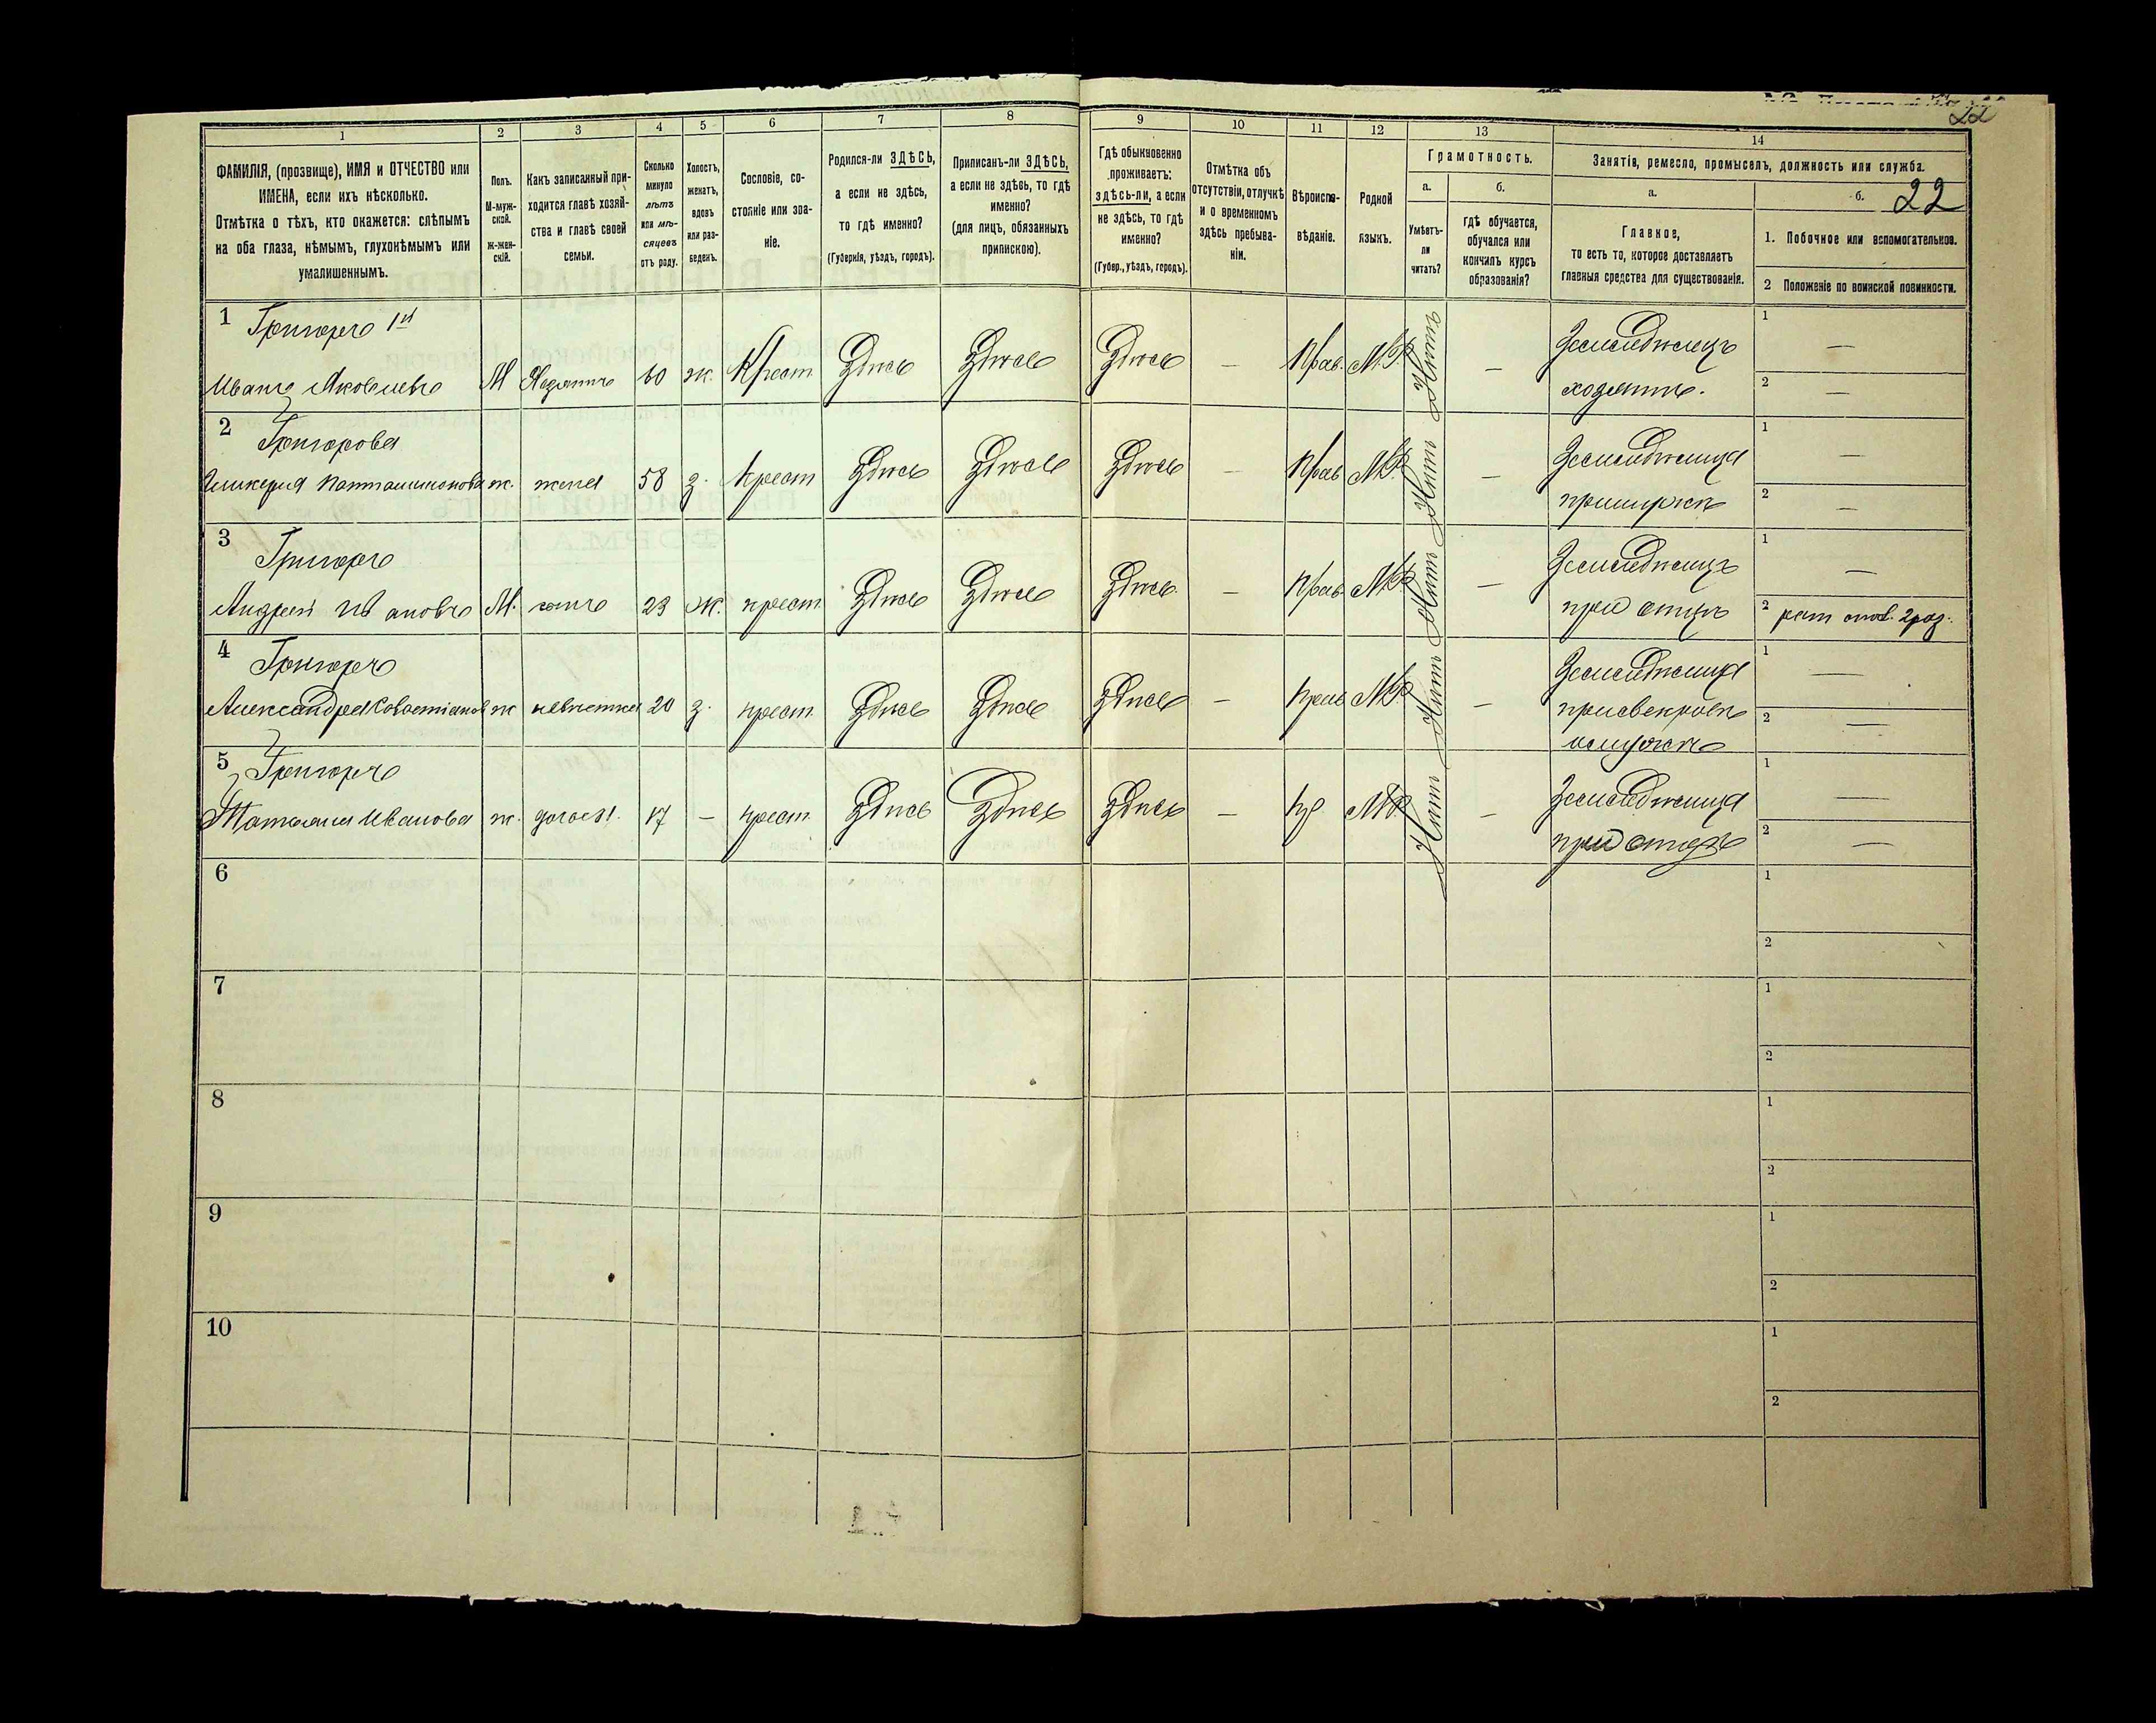 22
1 2 3 4 5 6 7 8 9 10 11 12 13 14
ФАМИЛІЯ, (прозвище), ИМЯ и ОТЧЕСТВО или
ИМЕНА, если ихъ нѣсколько.
Отмѣтка о тѣхъ, кто окажется: слѣпымъ
на оба глаза, нѣмымъ, глухонѣмымъ или
умалишеннымъ.
Полъ.
М-муж-
ской.
ж-жен-
скій.
Какъ записанный при-
ходится главѣ хозяй-
ства и главѣ своей
семьи.
Сколько
минуло
лѣтъ
или мѣ-
сяцевъ
отъ роду.
Холостъ,
женатъ,
вдовъ
или раз-
веденъ.
Сословіе, со-
стояніе или зва-
ніе.
Родился-ли ЗДѢСЬ,
а если не здѣсь,
то гдѣ именно?
(Губернія, уѣздъ, городъ).
Приписанъ-ли ЗДѢСЬ,
а если не здѣсь, то гдѣ
именно?
(для лицъ, обязанныхъ
припискою).
Гдѣ обыкновенно
проживаетъ:
здѣсь-ли, а если
не здѣсь, то гдѣ
именно?
(Губер., уѣздъ, городъ).
Отмѣтка объ
отсутствіи, отлучкѣ
и о временномъ
здѣсь пребыва-
ніи.
Вѣроиспо-
вѣданіе.
Родной
языкъ.
Грамотность.
а.
Умѣетъ-
ли
читать?
б.
гдѣ обучается,
обучался или
кончилъ курсъ
образованія?
Занятія, ремесло, промыселъ, должность или служба.
а.
Главное,
то есть то, которое доставляетъ
главныя средства для существованія.
б. 22
1. Побочное или вспомогательное.
2 Положеніе по воинской повинности.
1 Григоръ 1й
Иванъ Яковлевъ М Хозяинъ 60 ж. Крест Здѣсь Здѣсь Здѣсь — Прав. М. Нѣтъ — Земледѣлецъ 1 —
хозяинъ. 2 —
2 Григорова
Гликерія Пантелимонова ж. жена 58 з. крест Здѣсь Здѣсь Здѣсь — Прав М. Нѣтъ — Земледѣлица 1 —
при мужѣ 2 —
3 Григоръ
Андрей Ивановъ М. сынъ 23 Ж. крест Здѣсь Здѣсь Здѣсь Прав М. Нѣтъ — Земледѣлецъ 1 —
при отцѣ 2 рат опол. 2 раз.
4 Григоръ
Александра ж невѣстка 20 з. крест Здѣсь Здѣсь Здѣсь — прав М. Нѣтъ — Земледѣлица 1 —
2 —
5 Григоръ
Иванова ж. дочь 17 — крест Здѣсь Здѣсь Здѣсь — пр М. Нѣтъ — Земледѣлица 1 —
при отцѣ 2 —
6 1
2
7 1
2
8 1
2
9 1
2
10 1
2